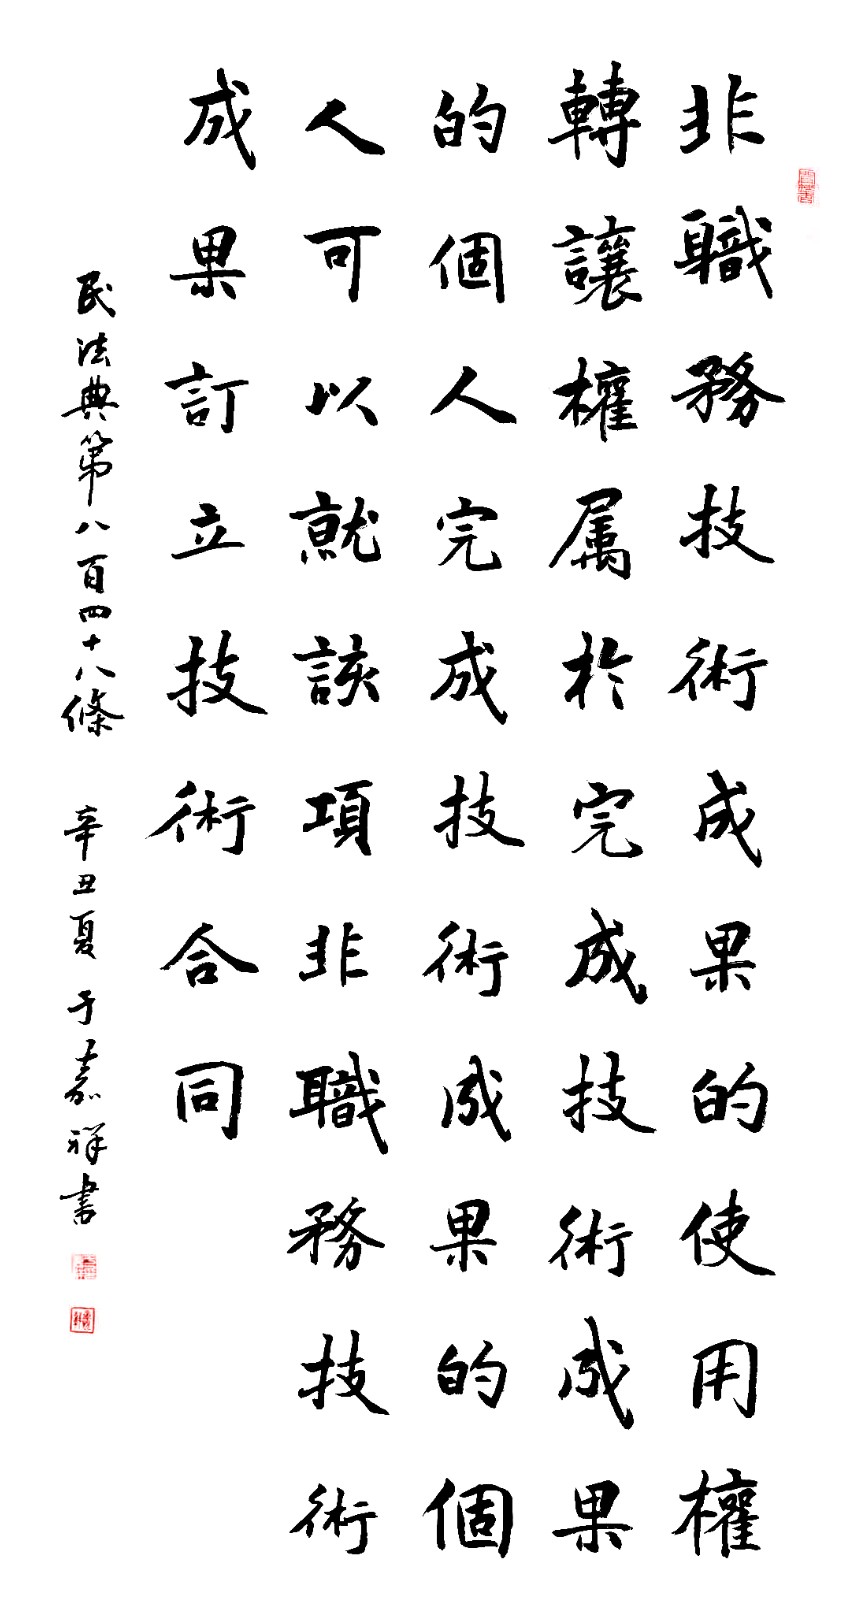 非職務技術成果的使用權
轉讓權属於完成技術成果
的個人完成技術成果的個
人可以就該項非職務技術
成果訂立技術合同
民法典第八百四十八條 辛丑夏于嘉祥书